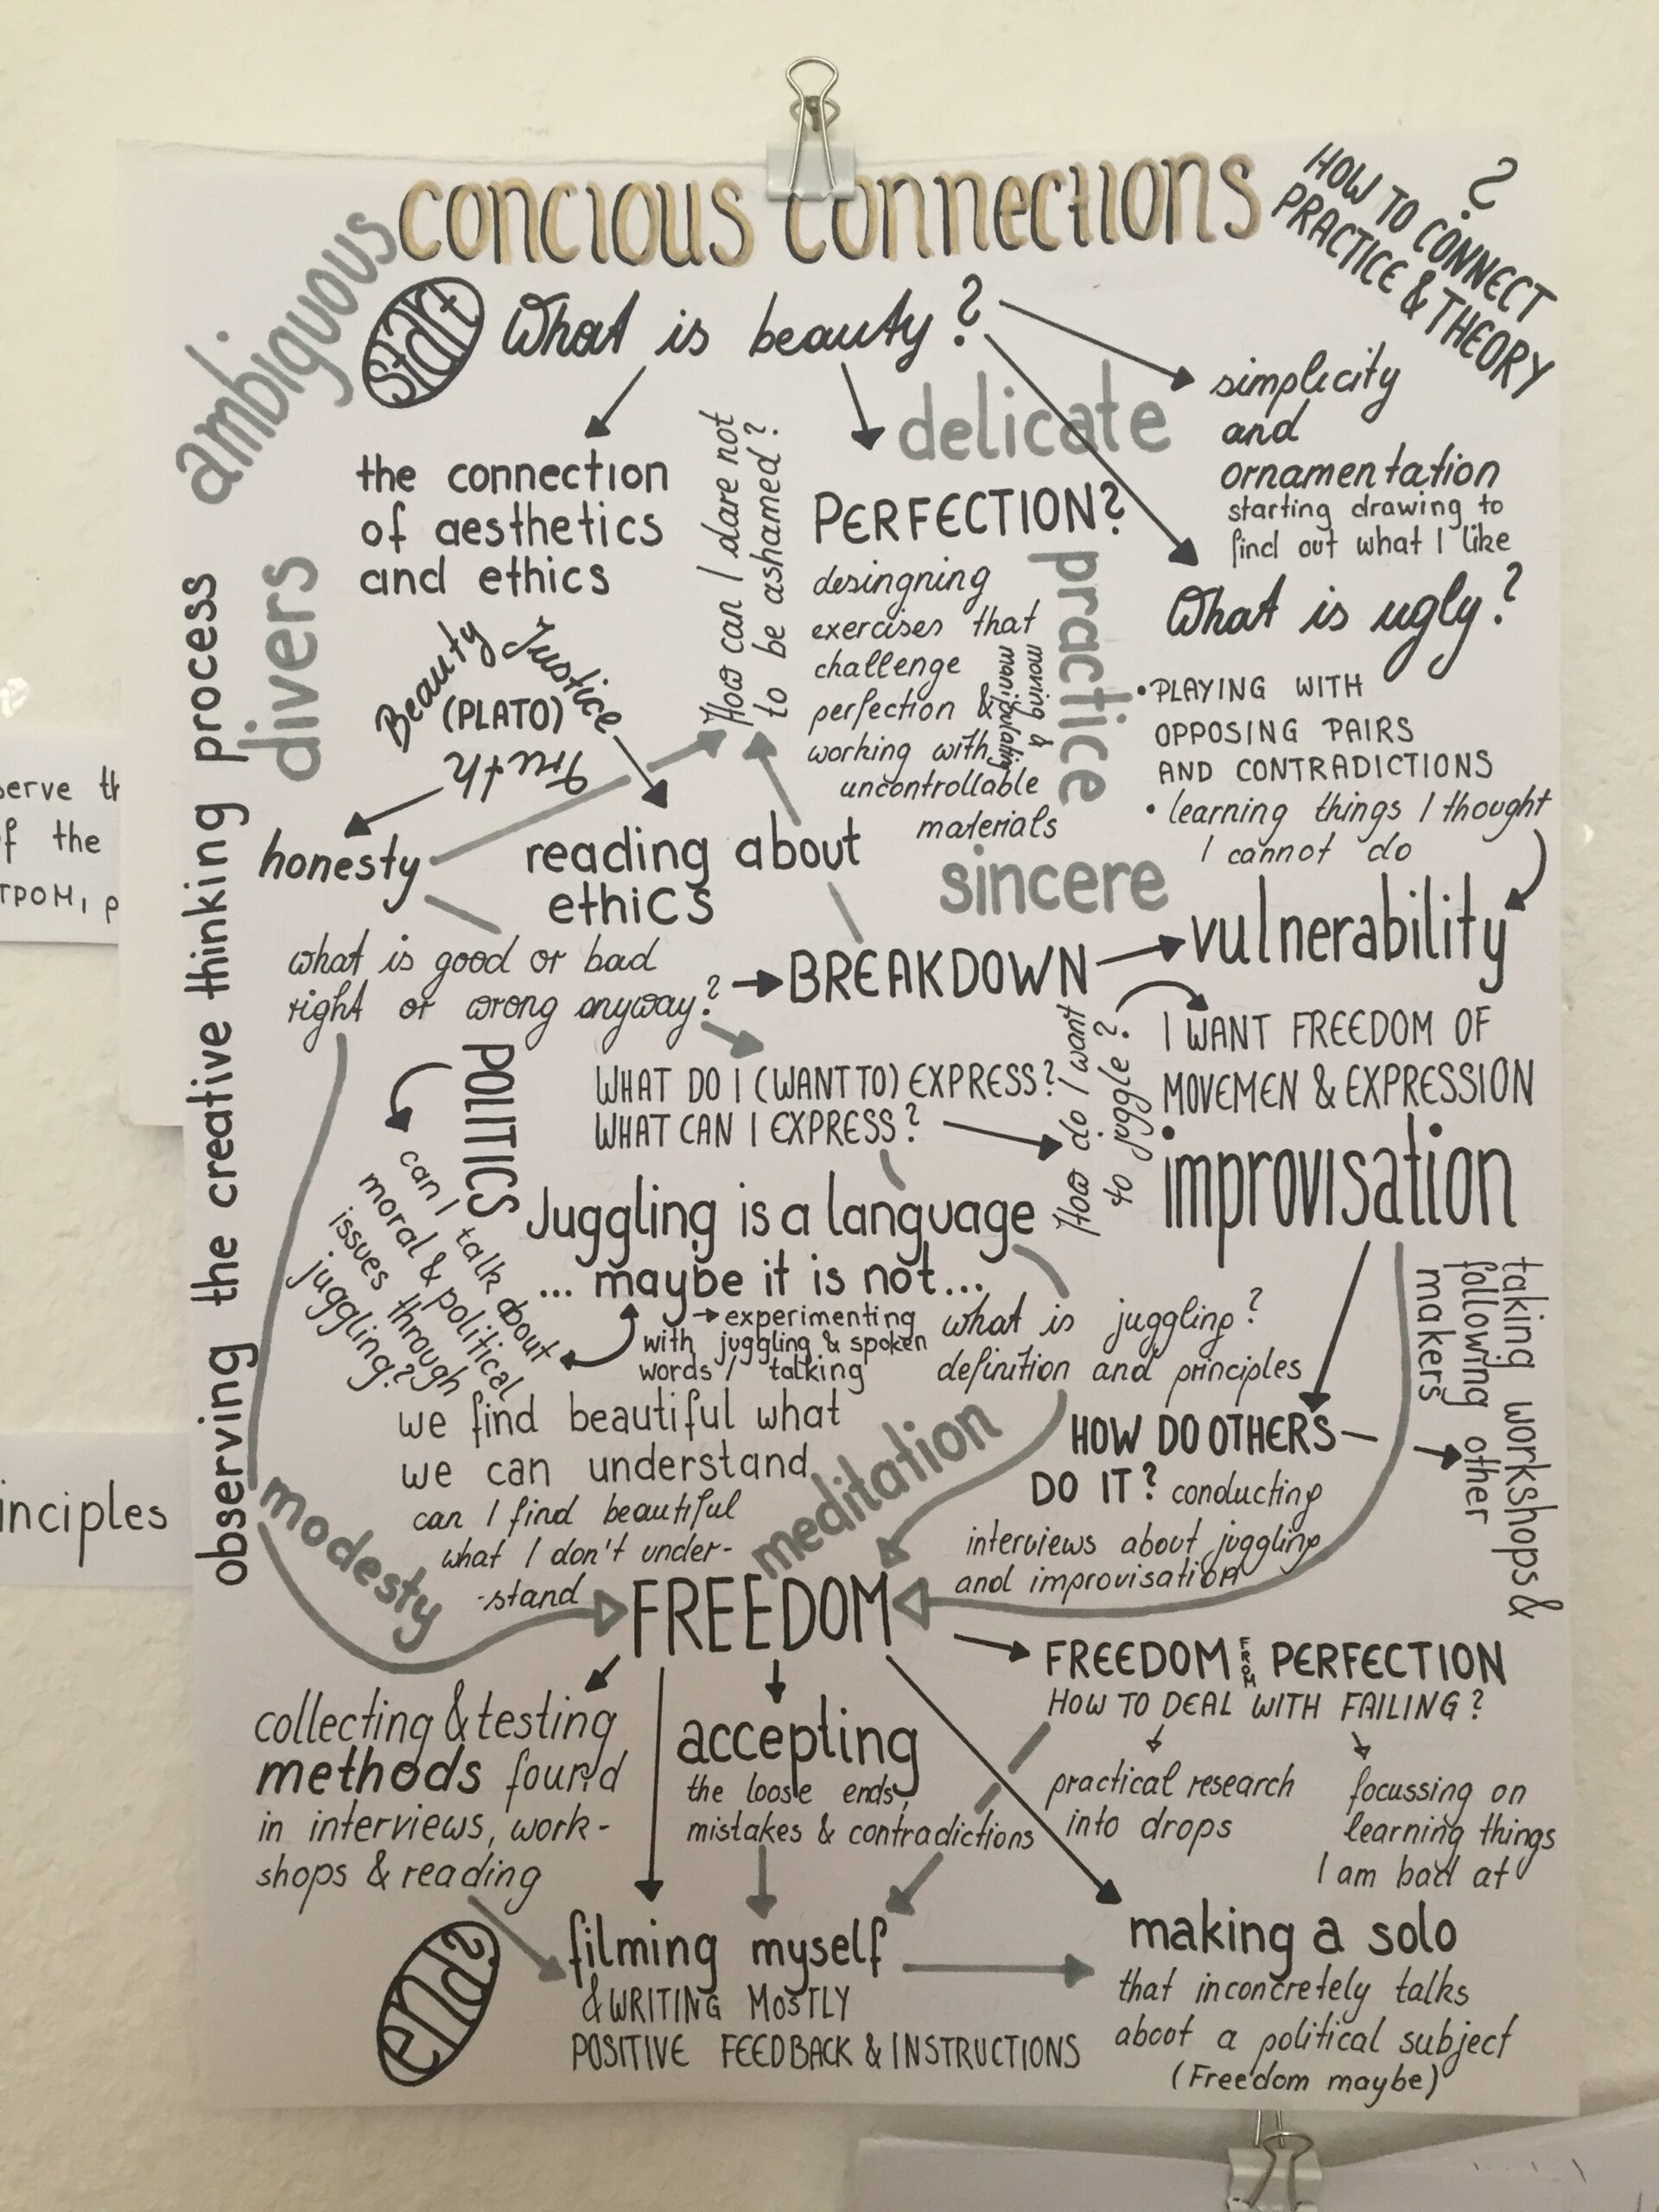 concious connections
HOW TO CONNECT
PRACTICE & THEORY
?
ambiguous
start
What is beauty?
simplicity
and
ornamentation
starting drawing to
find out what I like
delicate
the connection
of aesthetics
and ethics
How can I dare not
to be ashamed?
PERFECTION?
desingning
exercises that
challenge
perfection &
working with
uncontrollable
materials
moving &
manipulating
practice
What is ugly?
• PLAYING WITH
OPPOSING PAIRS
AND CONTRADICTIONS
• learning things I thought
I cannot do
divers
Beauty
Justice
(PLATO)
Truth
observing the creative thinking process
honesty
reading about
ethics
sincere
what is good or bad
right or wrong anyway?
BREAKDOWN
vulnerability
POLITICS
WHAT DO I (WANT TO) EXPRESS?
WHAT CAN I EXPRESS?
How do I want
to juggle?
I WANT FREEDOM OF
MOVEMEN & EXPRESSION
improvisation
can I talk about
moral & political
issues through
juggling?
Juggling is a language
... maybe it is not...
experimenting
with juggling & spoken
words / talking
what is juggling?
definition and principles
taking workshops &
following other
makers
we find beautiful what
we can understand
can I find beautiful
what I don't under-
-stand
meditation
HOW DO OTHERS
DO IT? conducting
interviews about juggling
and improvisation
modesty
FREEDOM
FREEDOM FROM PERFECTION
HOW TO DEAL WITH FAILING?
practical research
into drops
focussing on
learning things
I am bad at
collecting & testing
methods found
in interviews, work-
shops & reading
accepting
the loose ends,
mistakes & contradictions
end?
filming myself
& WRITING MOSTLY
POSITIVE FEEDBACK & INSTRUCTIONS
making a solo
that inconcretely talks
aboot a political subject
(Freedom maybe)
serve th
f the
TPOM, p
inciples